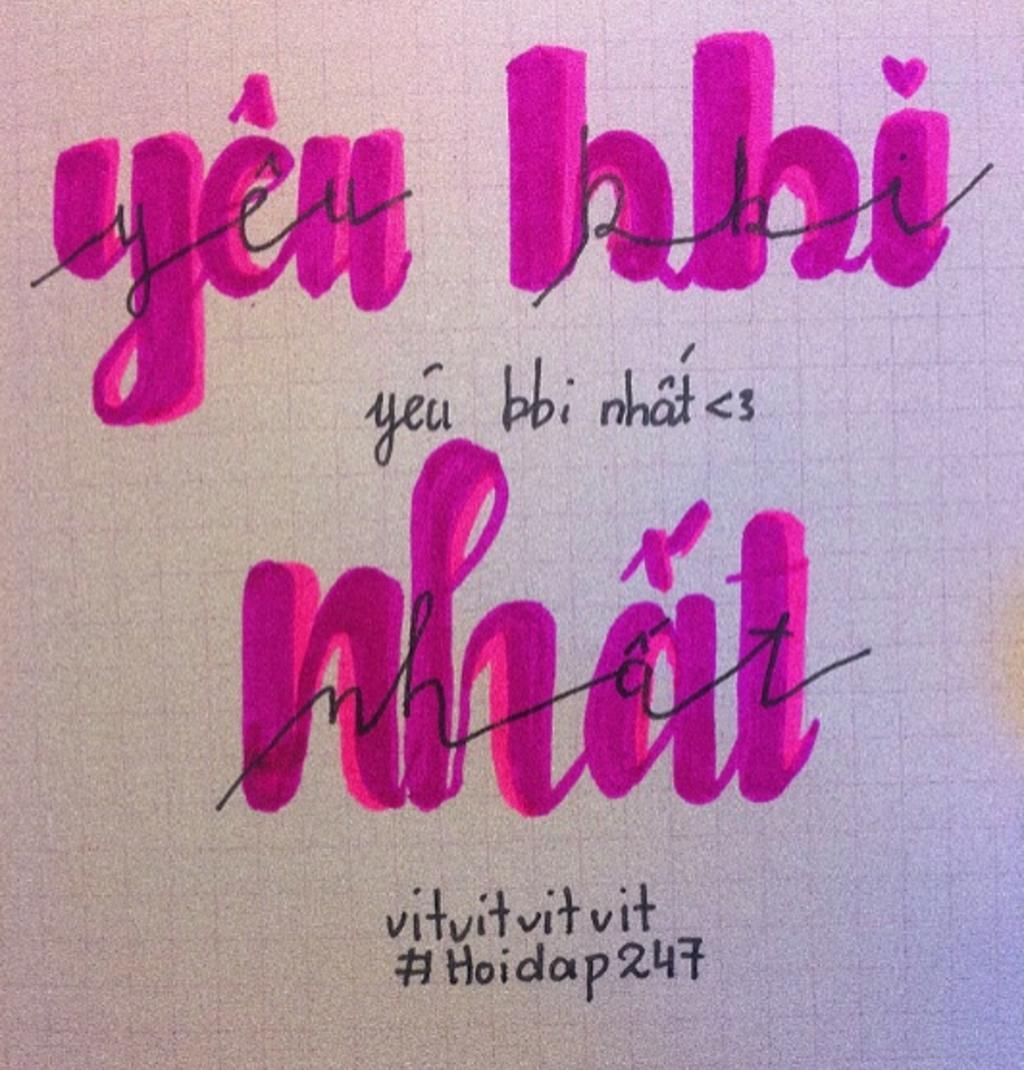 yêu bbi
yêu bbi
yêu bbi nhất <3
nhất
nhất
vitvitvitvit
#Hoidap247